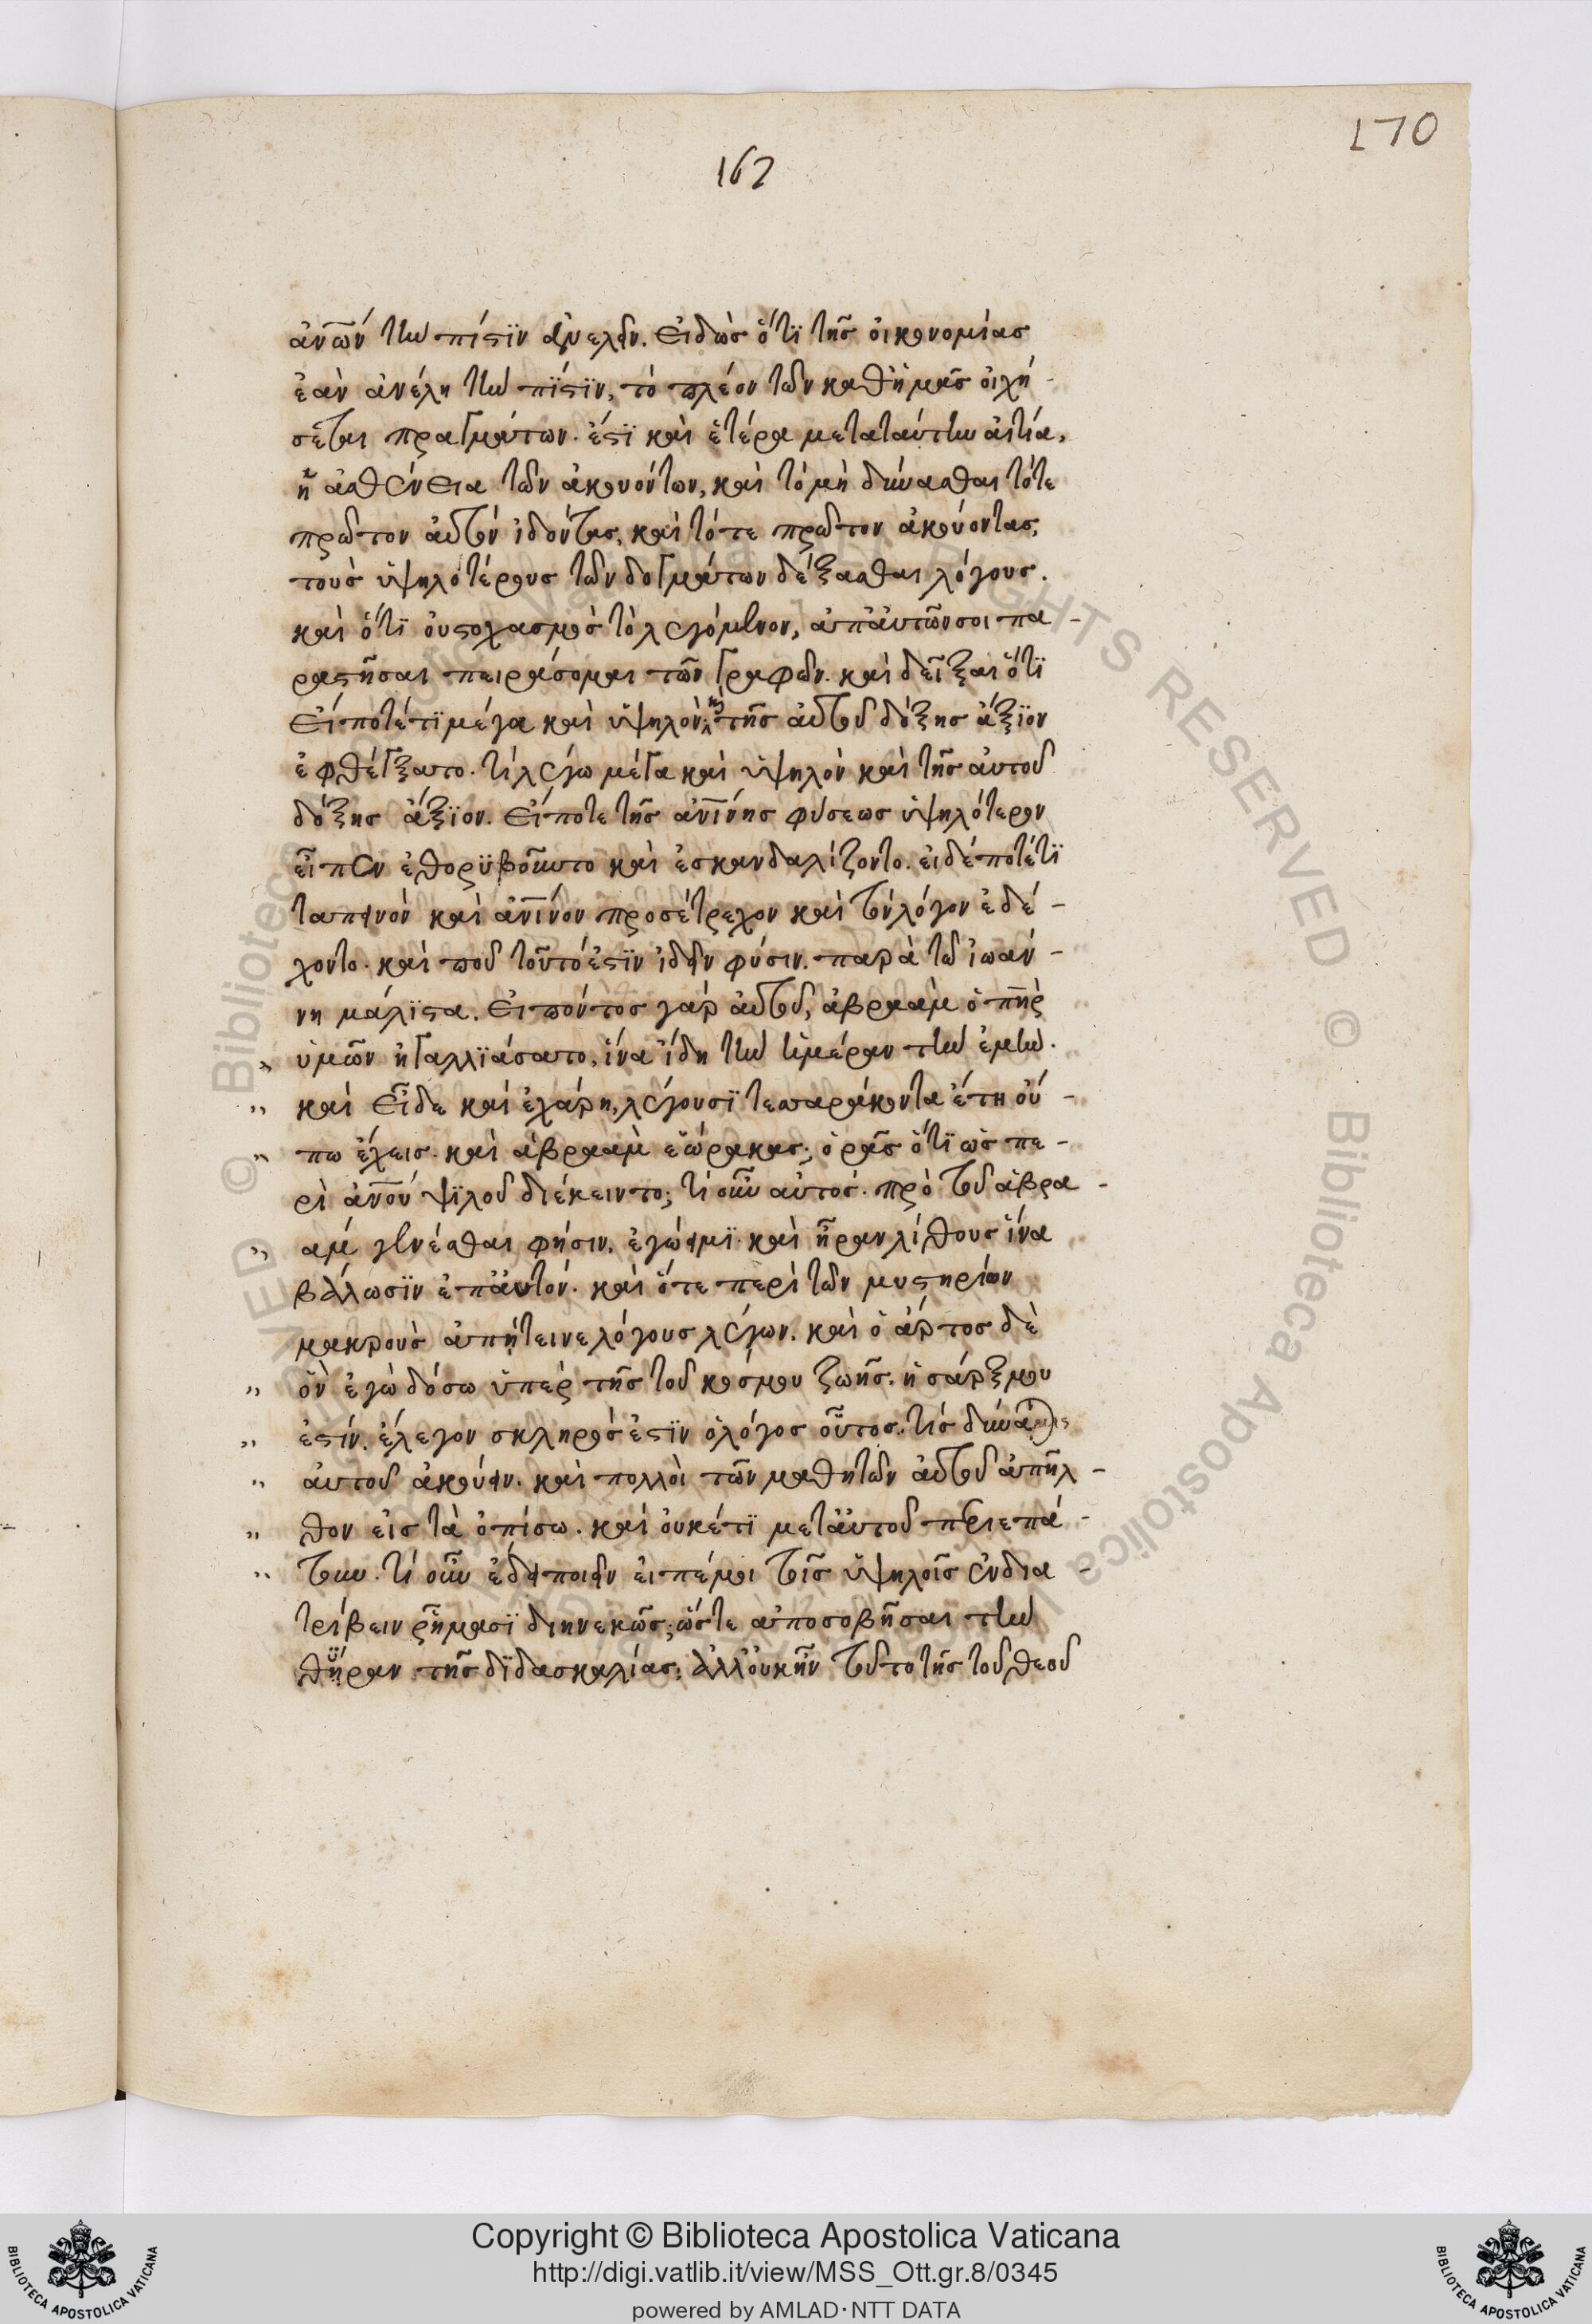 170
162
ἀν̅ων́ τὴν πίστϊν ἀνελεῖν. εἰδὼς ὅτϊ τῆς οἰκονομίας
ἐὰν ἀνέλη τὴν πΐστϊν, τὸ πλέον τῶν καθἡμᾶς οἰχή-
σεται πραγμάτων. ἔστϊ καὶ ἑτέρα μεταταύτην αἰτία,
ἡ ἀσθένεια τῶν ἀκουόντων, καὶ τὸ μὴ δύνασθαι τότε
πρῶτον αὐτὸν ἰδόντας, καὶ τότε πρῶτον ἀκούοντας,
τοὺς ὑψηλοτέρους τῶν δογμάτων δέξασθαι λόγους.
καὶ ὅτϊ οὐστοχασμὸς τὸ λεγόμενον, ἀπ' αὐτῶν σοι πα-
ραστῆσαι πειράσομαι τῶν γραφῶν. καὶ δεῖξαι ὅτϊ
εἴποτέ τϊ μέγα καὶ ὑψηλὸν καὶ τῆς αὐτοῦ δόξης ἄξϊον
ἐφθέγξατο. τί λέγω μέγα καὶ ὑψηλὸν καὶ τῆς αὐτοῦ
δόξης ἄξϊον. εἴποτε τῆς ἀν̅ίνης φύσεως ὑψηλότερον
εἶπεν ἐθορϋβοῦντο καὶ ἐσκανδαλίζοντο. εἰ δέ ποτέ τϊ
ταπεινὸν καὶ ἀν̅ίνον προσέτρεχον καὶ τὸν λόγον ἐδέ-
χοντο. καὶ ποῦ τοῦτό ἐστϊν ἰδεῖν φύσιν. παρὰ τῶ ἰωάν-
νη μάλϊστα. εἰπόντος γὰρ αὐτοῦ, ἀβραὰμ ὁ πη̅ρ
„ ὑμῶν ἠγαλλϊάσατο, ἵνα ἴδη τὴν ἡμέραν τὴν ἐμήν.
„ καὶ εἶδε καὶ ἐχάρη, λέγουσϊ τεσσαράκοντα ἔτη οὔ-
„ πω ἔχεις. καὶ ἀβραὰμ ἑώρακας; ὁρᾶς ὅτϊ ὡς πε-
ρὶ ἀν̅ου ψϊλοῦ διέκειντο; τί οὖν αὐτός. πρὸ τοῦ ἀβρα-
„ ὰμ γενέσθαι φησιν, ἐγώ εἰμϊ. καὶ ἦραν λίθους ἵνα
βάλωσϊν ἐπ' αὐτόν. καὶ ὅτε περὶ τῶν μυστηρίων
μακροὺς ἀπήτεινε λόγους λέγων. καὶ ὁ ἄρτος δὲ
„ ὃν ἐγὼ δόσω ὑπὲρ τῆς τοῦ κόσμου ζωῆς. ἡ σάρξ μου
„ ἐστίν. ἔλεγον σκληρός ἐστϊν ὁ λόγος οὗτος. τίς δύναται
„ αὐτοῦ ἀκούειν. καὶ πολλοὶ τῶν μαθητῶν αὐτοῦ ἀπῆλ-
„ θον εἰς τὰ ὀπίσω. καὶ οὐκέτϊ μετ' αὐτοῦ περιεπά-
„ τουν. τί οὖν ἔδει ποιεῖν εἰπέ μοι τοῖς ὑψηλοῖς ἐνδια-
τρίβειν ῥήμασϊ διηνεκῶς; ὥστε ἀποσοβῆσαι τὴν
θήραν τῆς δϊδασκαλίας; ἀλλ' οὐκ ἦν τοῦτο τῆς τοῦ θεοῦ
Copyright © Biblioteca Apostolica Vaticana
http://digi.vatlib.it/view/MSS_Ott.gr.8/0345
powered by AMLAD·NTT DATA